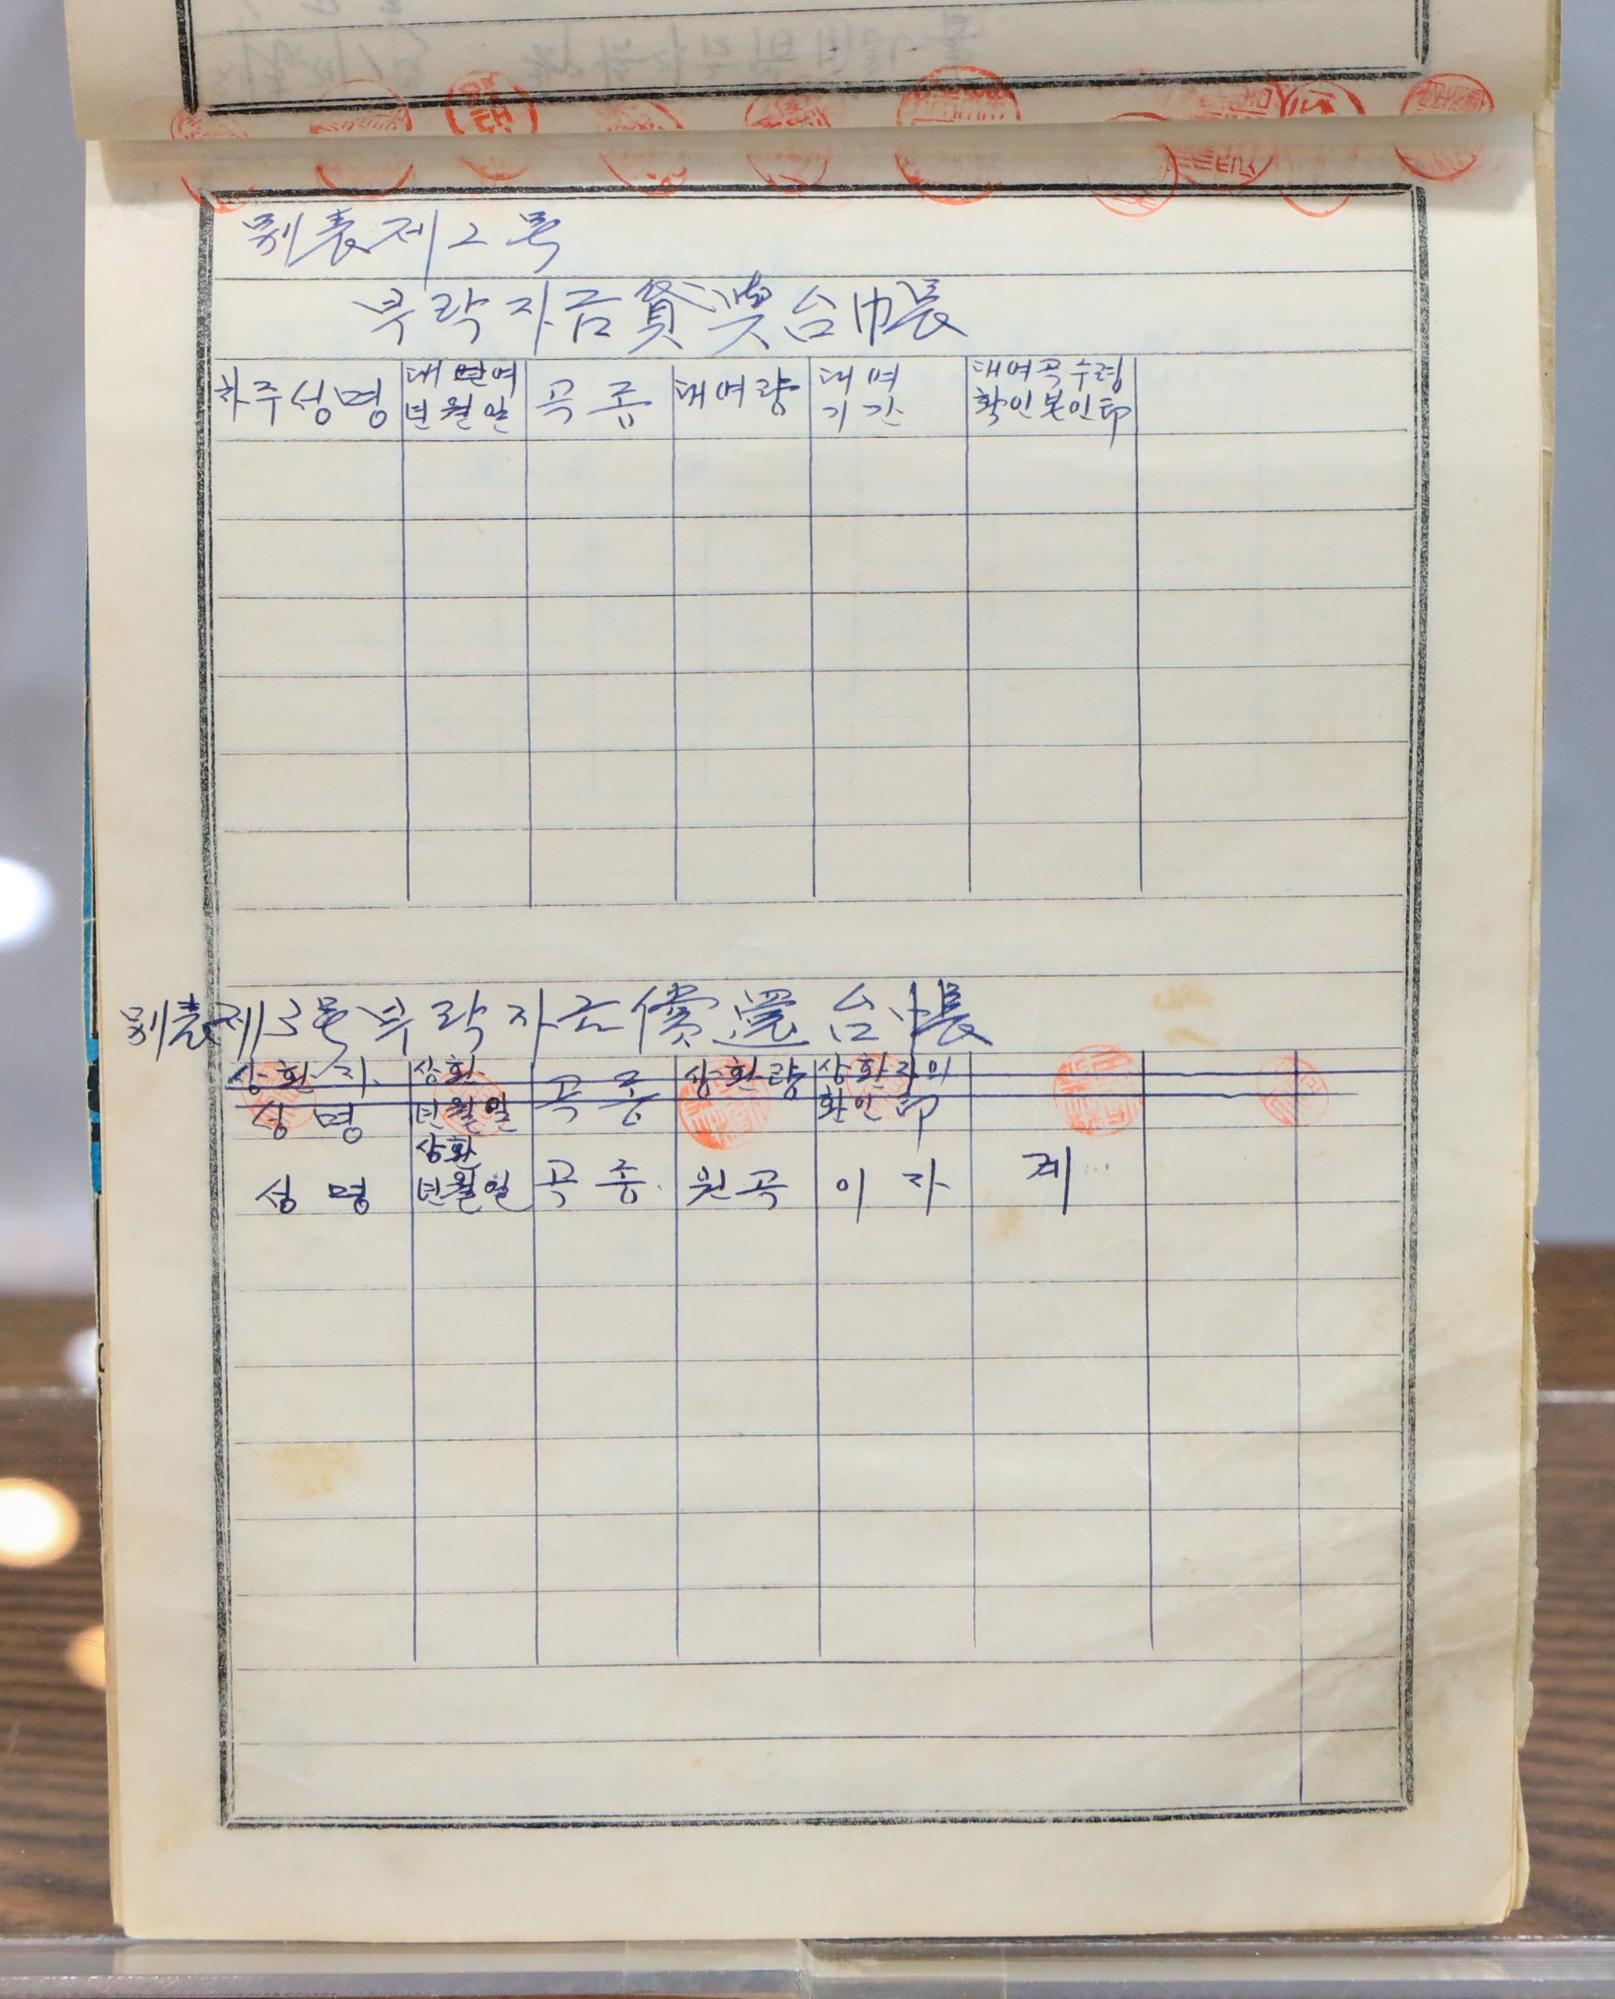 別表제2号
부락자금貸與台帳
차주성명 대여 년월일 곡종 대여량 대여 기간 대여곡수령 확인본인印
別表제3号부락자금償還台帳
상환자 성명 상환 년월일 곡종 상환량 상환자의 확인印
성명 상환 년월일 곡종 원곡 이자 계